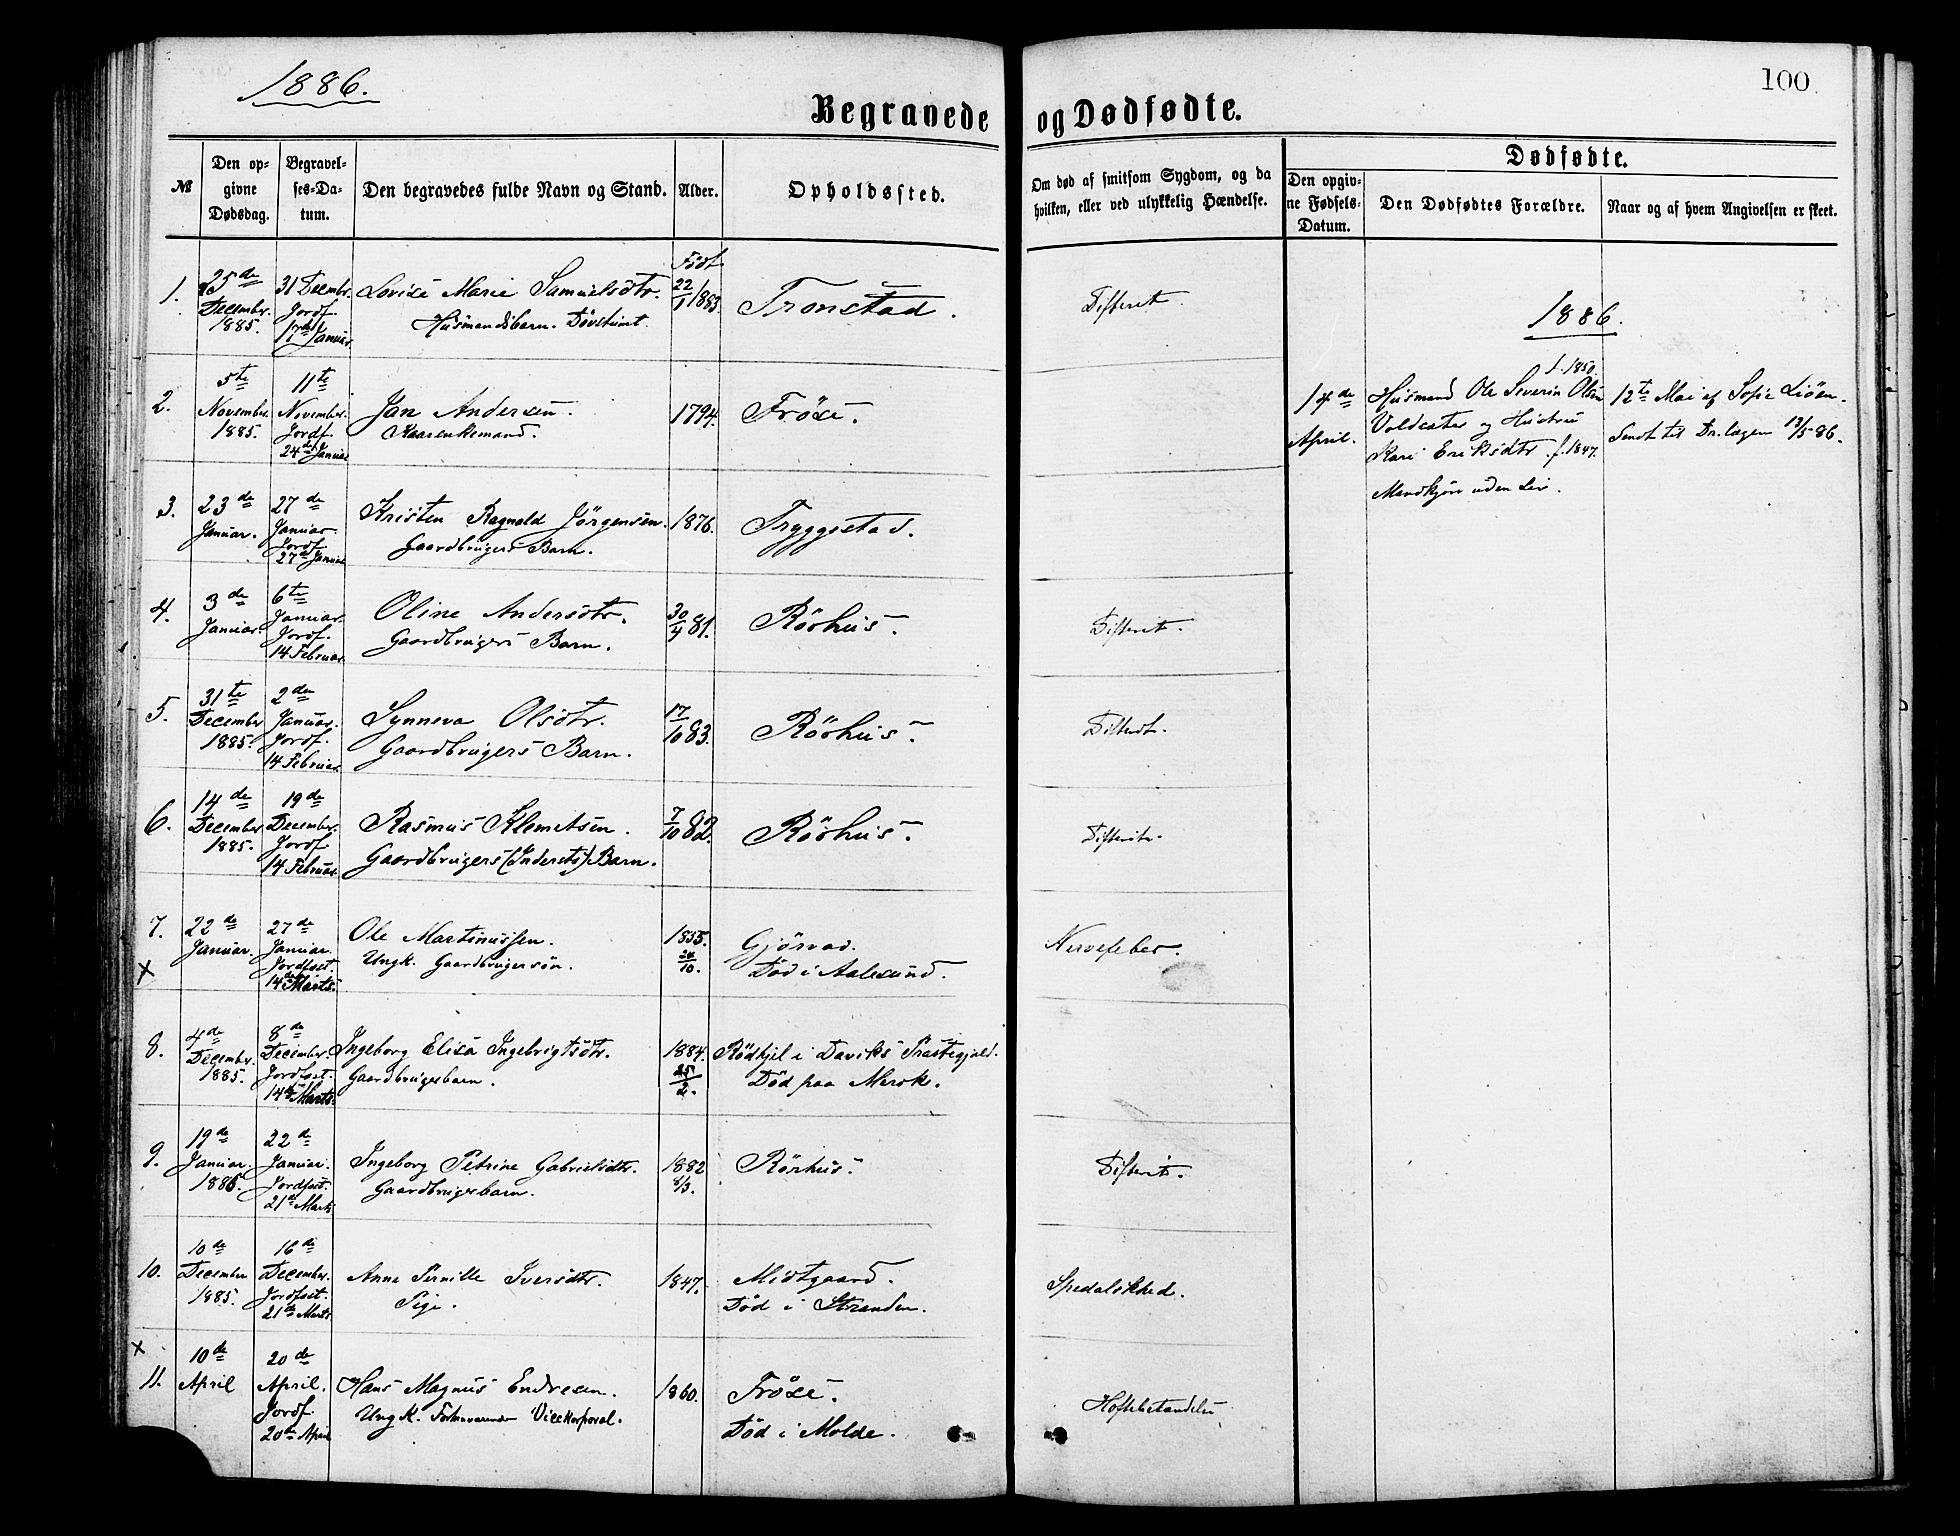 1886.
100
Begravede og Dødfødte.
№
Den op-
givne
Dødsdag.
Begravel-
ses-Da-
tum.
Den begravedes fulde Navn og Stand.
Alder.
Opholdssted.
Om død af smitsom Sygdom, og da
hvilken, eller ved ulykkelig Hændelse.
Dødfødte.
Den opgiv-
ne Fødsels-
Datum.
Den Dødfødtes Forældre.
Naar og af hvem Angivelsen er skeet.
1.
25de
December
1885.
31 Decembr.
Jordf.
17de Januar
Lovise Marie Samuelsdtr.
Husmandsbarn. Døvstumt.
Født
22/1 1883.
Tronstad.
Difterit.
2.
5te
November
1885.
11te
November.
Jordf.
24de Januar
Jan Andersen.
Kaarenkemand.
1794.
Frøse.
3.
23de
Januar.
27de
Januar.
Jordf.
27de Januar
Kristen Ragnald Jørgensen.
Gaardbrugers Barn.
1876.
Tryggestad.
4.
3de
Januar.
6te
Januar.
Jordf.
14 Februar.
Oline Andersdtr.
Gaardbrugers Barn.
30/4 81.
Rørhus.
Difterit.
5.
31te
December
1885.
2den
Januar.
Jordf.
14 Februar
Synneva Olsdtr.
Gaardbrugers Barn.
17/10 83.
Rørhus.
Difterit.
6.
14de
December
1885.
19de
December.
Jordf.
14 Februar.
Rasmus Klemetsen.
Gaardbrugers (Inderets) Barn.
7/10 82.
Rørhus.
Difterit.
7.
x
22de
Januar.
27de
Januar.
Jordfæst.
14de Marts.
Ole Martinussen.
Ungk. Gaardbrugersøn.
1855.
24/10.
Gjørvad.
Død i Aalesund.
Nervefeber.
8.
4de
December.
1885.
8de
December.
Jordfæst.
14de Marts.
Ingeborg Elisa Ingebrigtsdtr.
Gaardbrugerbarn.
1884.
25/2.
Rødkjel i Daviks Præstegjeld.
Død paa Merok.
9.
19de
Januar.
1886.
22de
Januar.
Jordfæst.
21de Marts
Ingeborg Petrine Gabrielsdtr.
Gaardbrugerbarn.
1882
8/3.
Rørhus.
Difterit.
10.
10de
December
1885.
16de
December.
Jordfæst.
21de Marts
Anne Pernille Iversdtr.
Pige.
1847.
Midtgaard.
Død i Stranden.
Spedalskhed.
x
11.
10de
April
20de
April.
Jordf.
20de April
Hans Magnus Endresen.
Ungk. Forhenværende Vicekorporal.
1860.
Frøse.
Død i Molde.
Hoftebetændelse
1886.
14de
April.
f. 1850.
Husmand Ole Severin Olsen
Voldsæter og Hustru
Kari Eriksdtr. f. 1847.
Mandkjøn uden Liv.
12te Mai af Sofie Liøen.
Sendt til Dr.lægen 13/5 86.